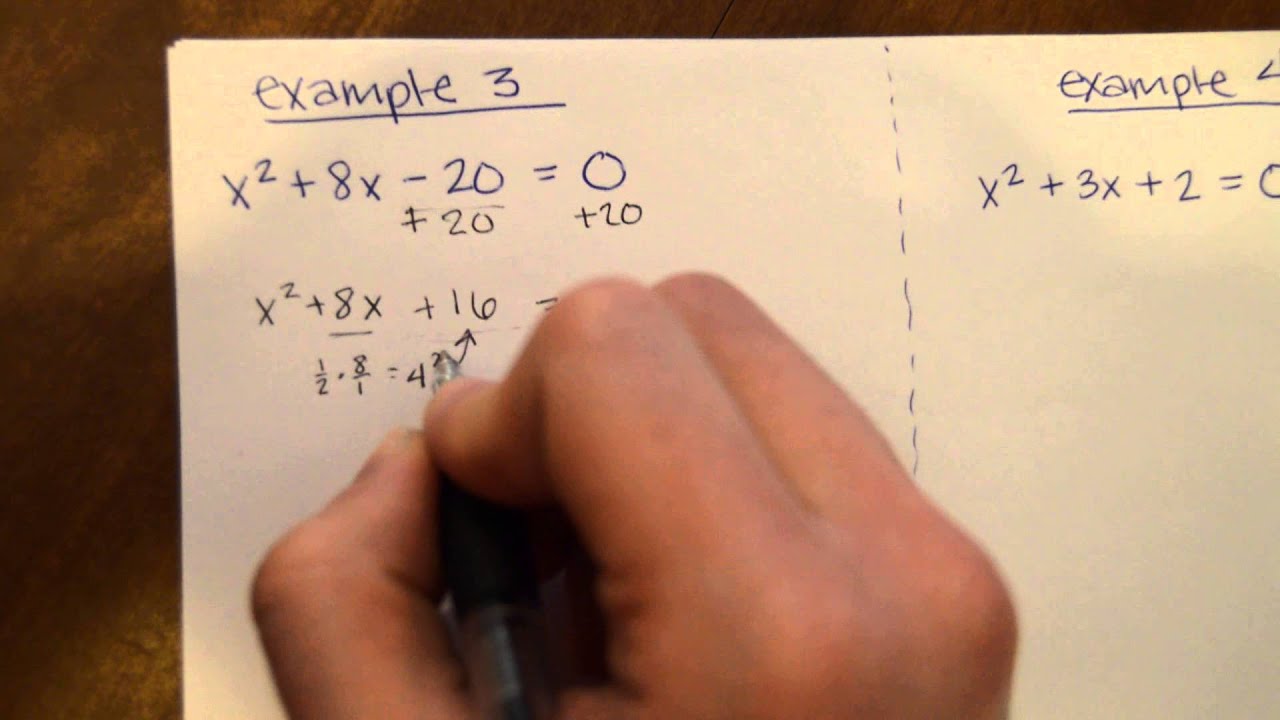 example 3
x² + 8x - 20 = 0
+ 20 +20
x² + 8x + 16 =
1/2 · 8/1 = 4²
example 4
x² + 3x + 2 = 0